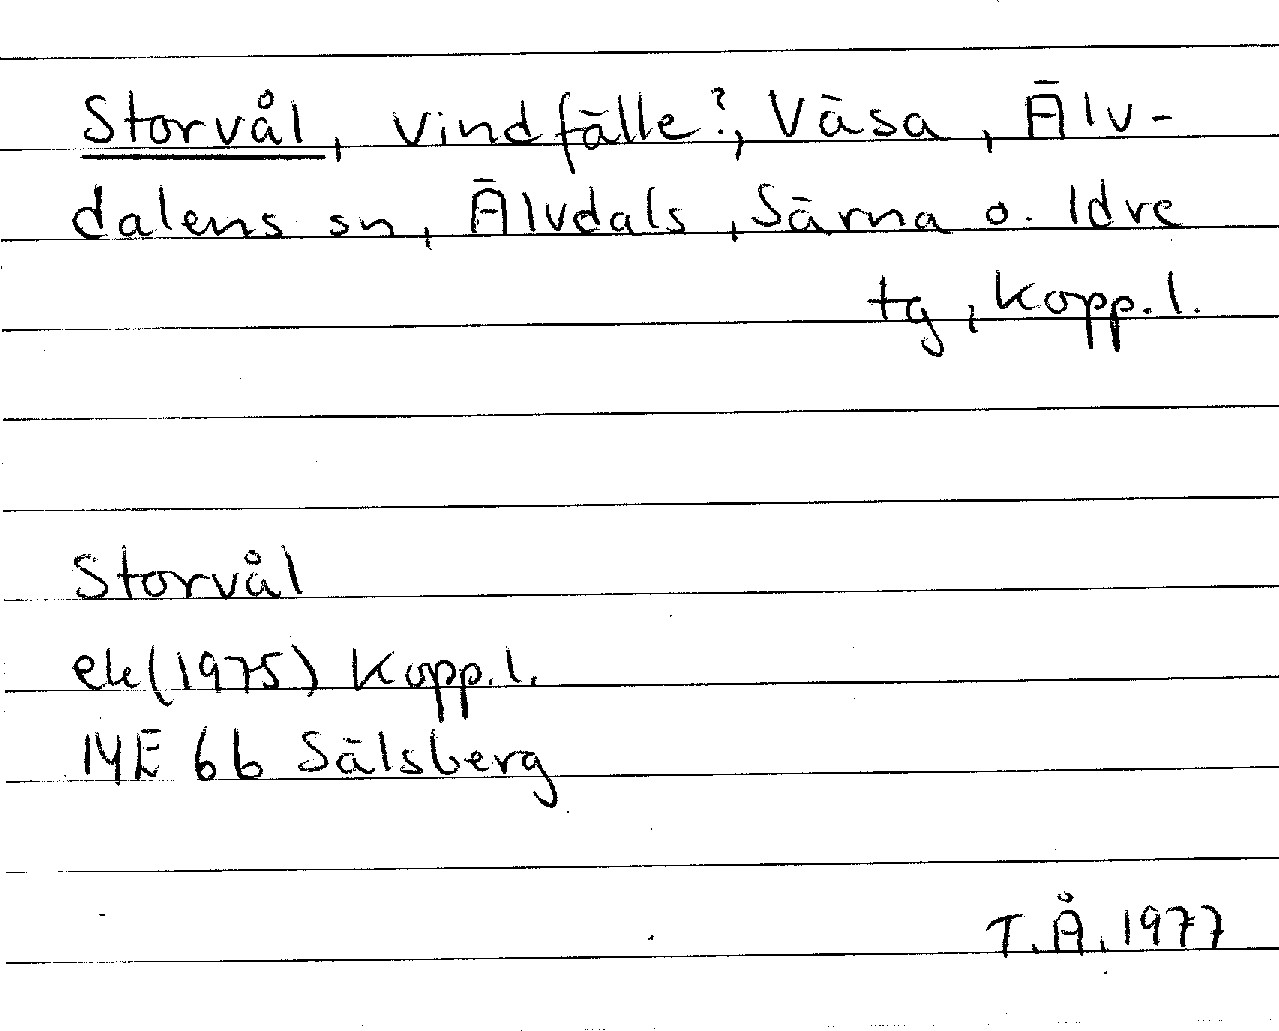 Storvål, vindfälle?, Väsa, Älv-
dalens sn, Älvdals, Särna o. Idre
tg, Kopp.l.
Storvål
ek(1975) Kopp.l.
14E 6b Sälsberg
T.Å. 1977